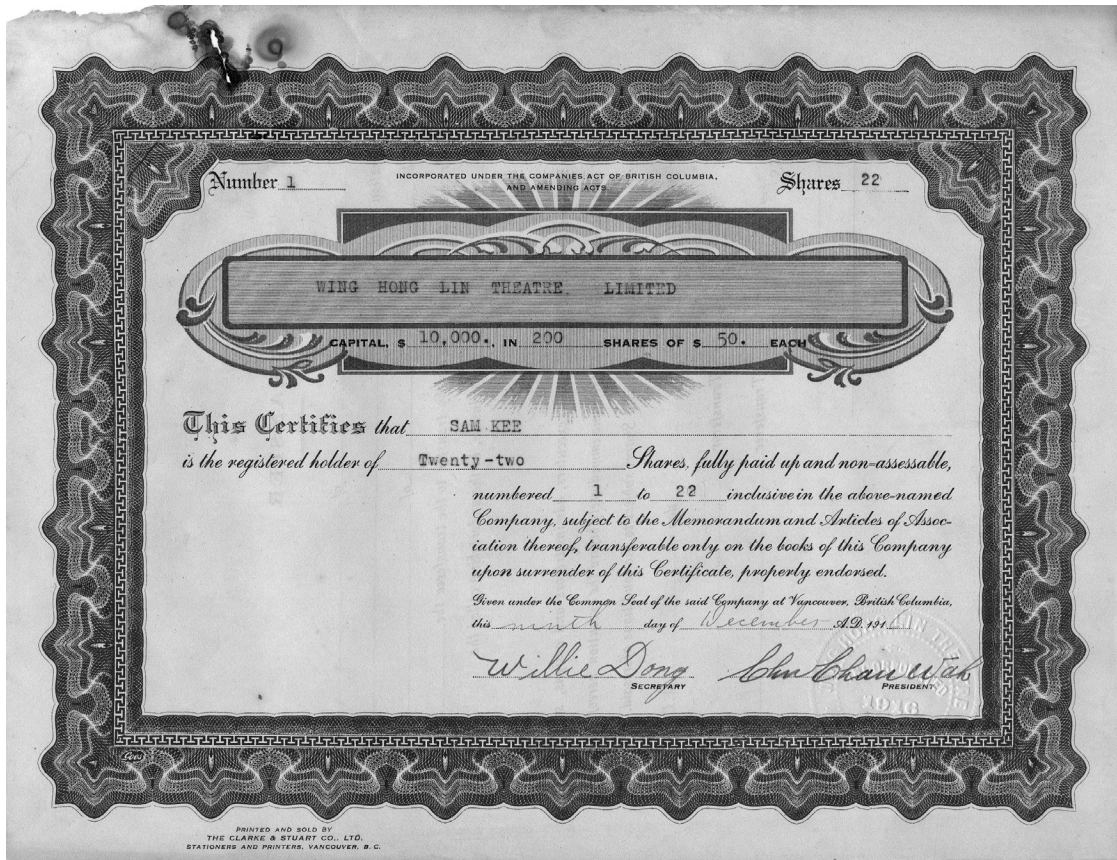 Number 1
INCORPORATED UNDER THE COMPANIES ACT OF BRITISH COLUMBIA,
AND AMENDING ACTS.
Shares 22
WING HONG LIN THEATRE LIMITED
CAPITAL, $ 10,000., IN 200 SHARES OF $ 50. EACH
This Certifies that SAM KEE
is the registered holder of Twenty-two Shares, fully paid up and non-assessable,
numbered 1 to 22 inclusive in the above-named
Company, subject to the Memorandum and Articles of Assoc-
iation thereof, transferable only on the books of this Company
upon surrender of this Certificate, properly endorsed.
Given under the Common Seal of the said Company at Vancouver, British Columbia,
this ninth day of December A.D. 1916
Willie Dong
SECRETARY
Chu Chau Wah
PRESIDENT
1916
Goes
PRINTED AND SOLD BY
THE CLARKE & STUART CO., LTD.
STATIONERS AND PRINTERS, VANCOUVER, B. C.